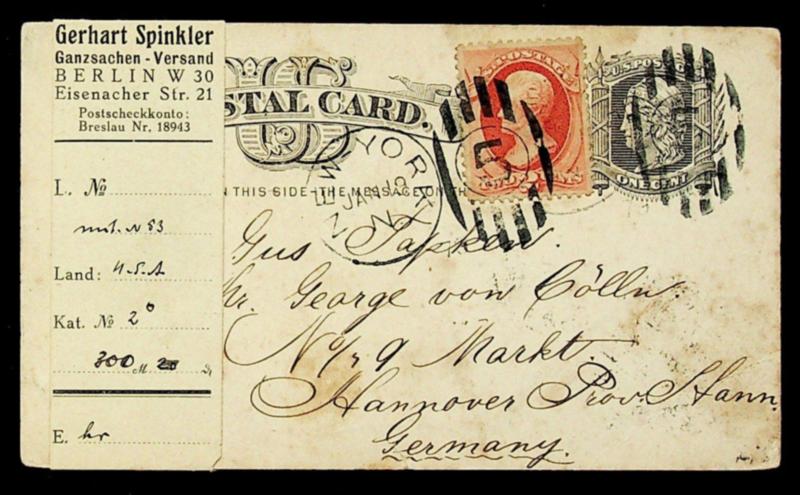 Gerhart Spinkler
Ganzsachen - Versand
BERLIN W 30
Eisenacher Str. 21
Postscheckkonto:
Breslau Nr. 18943
L. №
Land: U.S.A
Kat. № 2
300 M.
E.
STAL CARD.
N THIS SIDE-THE MESSAGE ON TH
NEW YORK
JAN 12
POSTAGE
U.S. POSTAGE
ONE CENT
5
Gus Papken.
George von Cölln.
No/. 9 Markt.
Hannover Prov. Hann.
Germany.